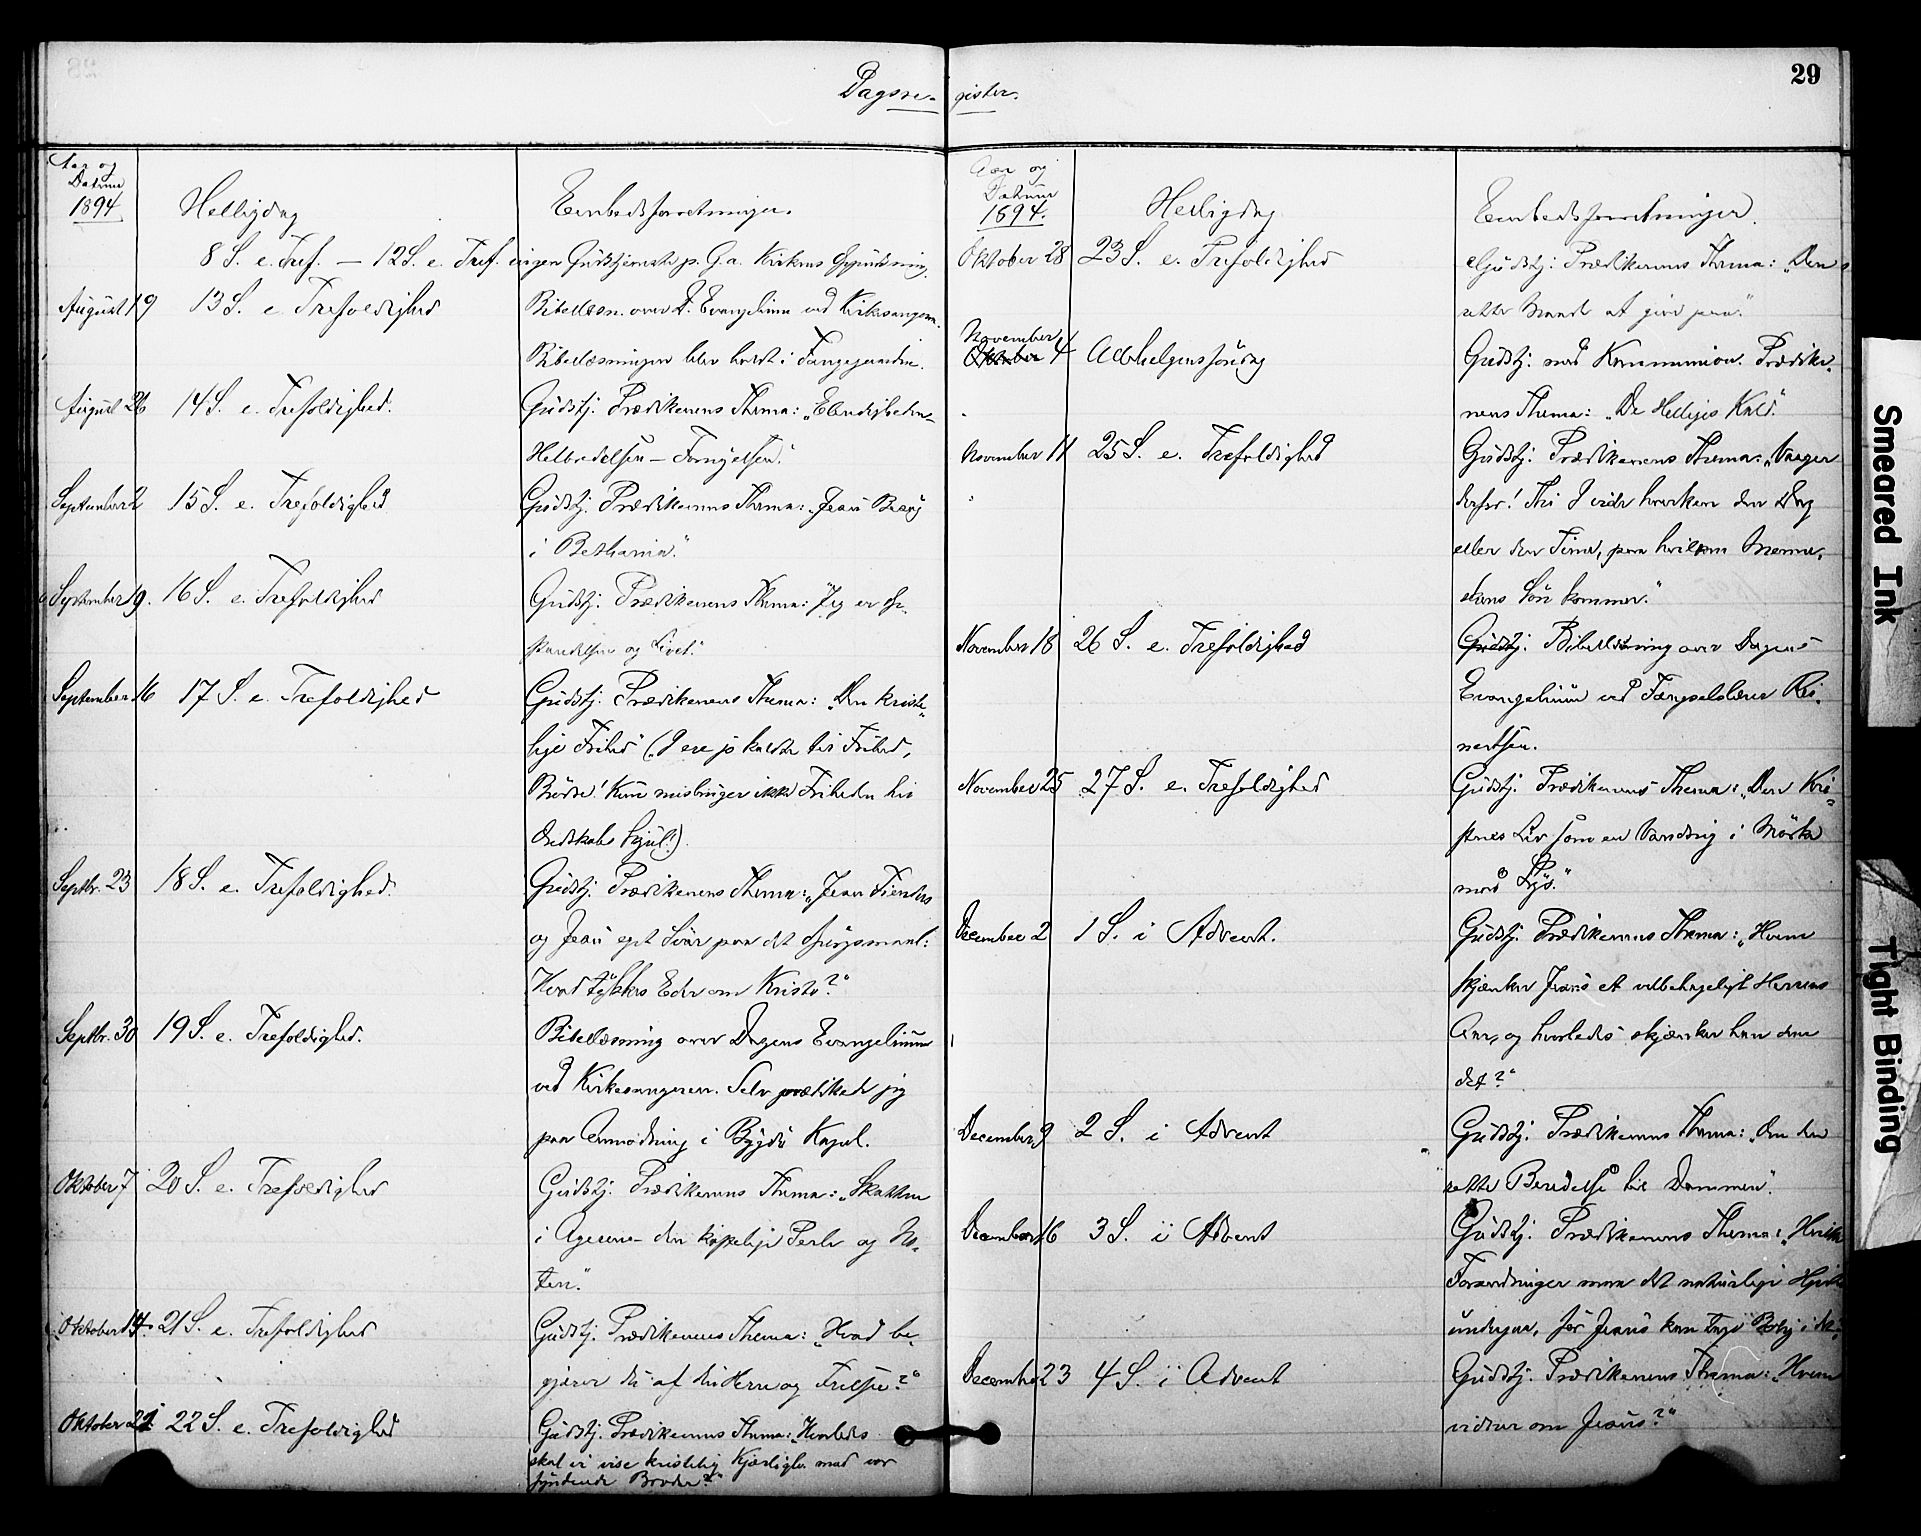 Dagsre- gister.
29
Aar og
Datum
1894
Helligdag
Embedsforretninger.
8 S. e. Tref. — 12 S. e. Tref. ingen Gudstjeneste p. G. a. Kirkens Oppudsning.
August 19 13 S. e. Trefoldighed Bibellæsn. over D. Evangelium ved Kirkesangeren.
Bibellæsningen blev holdt i Fange
August 26 14 S. e. Trefoldighed. Gudstj. Prædikenens Thema: „Elendigheden-
Helbredelsen — Fornyelsen."
September 2 15 S. e. Trefoldighed Gudstj. Prædikenens Thema: „Jesu Besøg
i Bethania."
September 9. 16 S. e. Trefoldighed Gudstj. Prædikenens Thema: „Jeg er Op-
standelsen og Livet."
September 16 17 S. e. Trefoldighed Gudstj. Prædikenens Thema: „Den kriste-
lige Frihed" („I ere jo kaldte til Frihed,
Brødre! Kun misbruger ikke Friheden til
Ondskabs Skjul!).
Septbr. 23 18 S. e. Trefoldighed. Gudstj. Prædikenens Thema: „Jesu Fienders
og Jesu eget Svar paa det Spørgsmaal:
Hvad tykkes Eder om Kristo?"
Septbr. 30 19 S. e. Trefoldighed. Bibellæsning over Dagens Evangelium
ved Kirkesangeren. Selv prædikede jeg
paa Anmodning i Bygdø Kapel.
Oktober 7 20 S. e. Trefoldighed Gudstj. Prædikenens Thema: „Skatten
i Ageren — den kostelige Perle og No-
ten."
Oktober 14. 21 S. e. Trefoldighed Gudstj. Prædikenens Thema: „Hvad be-
gjærer du af din Herre og Frelser?"
Oktober 21 22 S. e. Trefoldighed Gudstj. Prædikenens Thema: „Hvorledes
skal vi vise kristelig Kjærlighed mod vor
syndende Broder?"
Aar og
Datum
1894.
Helligdag
Embedsforretninger.
Oktober 28 23 S. e. Trefoldighed Gudstj: Prædikenens Thema: „Den
rette Maade at give paa."
November
Oktober 4 Allehelgenssøndag Gudstj. med Kommunion. Prædike-
nens Thema: „De Helliges Kald."
November 11 25 S. e. Trefoldighed Gudstj: Prædikenens Thema: „Vaager
derfor! Thi I vide hverken den Dag
eller den Time, paa hvilken Menne-
skens Søn kommer."
November 18 26 S. e. Trefoldighed Gudstj: Bibellæsning over Dagens
Evangelium ved Fængselslærer Rei-
nertsen.
November 25 27 S. e. Trefoldighed Gudstj. Prædikenens Thema: „Den Kri-
stnes Liv som en Vandring i Mørke
mod Lys."
December 2 1 S. i Advent. Gudstj. Prædikenens Thema: „Hvem
skjænker Jesus et velbehageligt Herrens
Aar, og hvorledes skjænker han dem
det?"
December 9 2 S. i Advent Gudstj. Prædikenens Thema: „Om den
rette Beredelse til Dommen."
December 16 3 S. i Advent Gudstj. Prædikenens Thema: „Hvilke
Forandringer maa det naturlige Hjerte
undergaa, før Jesus kan tage Bolig i det."
December 23 4 S. i Advent Gudstj. Prædikenens Thema: „Hvem
vidner om Jesus?"
Smeared Ink
Tight Binding